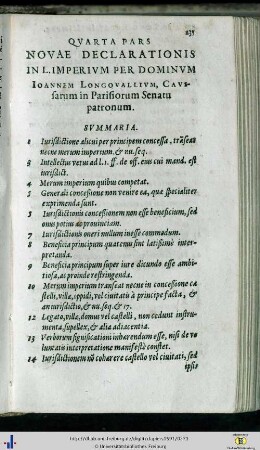 QVARTA PARS
NOVAE DECLARATIONIS
IN L. IMPERIVM PER DOMINVM
IOANNEM LONGOVALLIVM, CAVS-
sarum in Parisiorum Senatu
patronum.
SVMMARIA.
1 Iurisdictione alicui per principem concessa, trāseat
necne merum imperium. & nu. seq.
3 Intellectus verus ad l. 1. ff. de off. eius cui mand. est
iurisdict.
4 Merum imperium quibus competat.
5 Generali concessione non venire ea, quæ specialiter
exprimenda sunt.
Iurisdictionis concessionem non esse beneficium, sed
onus potius & prouinciam.
7 Iurisdictionis oneri nullum inesse commodum.
8 Beneficia principum quatenus sint latissimè inter-
pretanda.
9 Beneficia principum super iure dicundo esse ambi-
tiosa, ac proinde restringenda.
10 Merum imperium transeat necne in concessione ca
stelli, villæ, oppidi, vel ciuitatis à principe facta, &
an iurisdictio, & nu. seq. & 17.
12 Legato, villa, domus vel castello, non cedunt instru-
menta, supellex, & alia adiacentia.
13 Verborum significationi inhærendum esse, nisi de vo
luntatis interpretatione manifestè constet.
14 Iurisdictionem nō cohærere castello vel ciuitati, sed
ipsis
© Universitätsbibliothek Freiburg